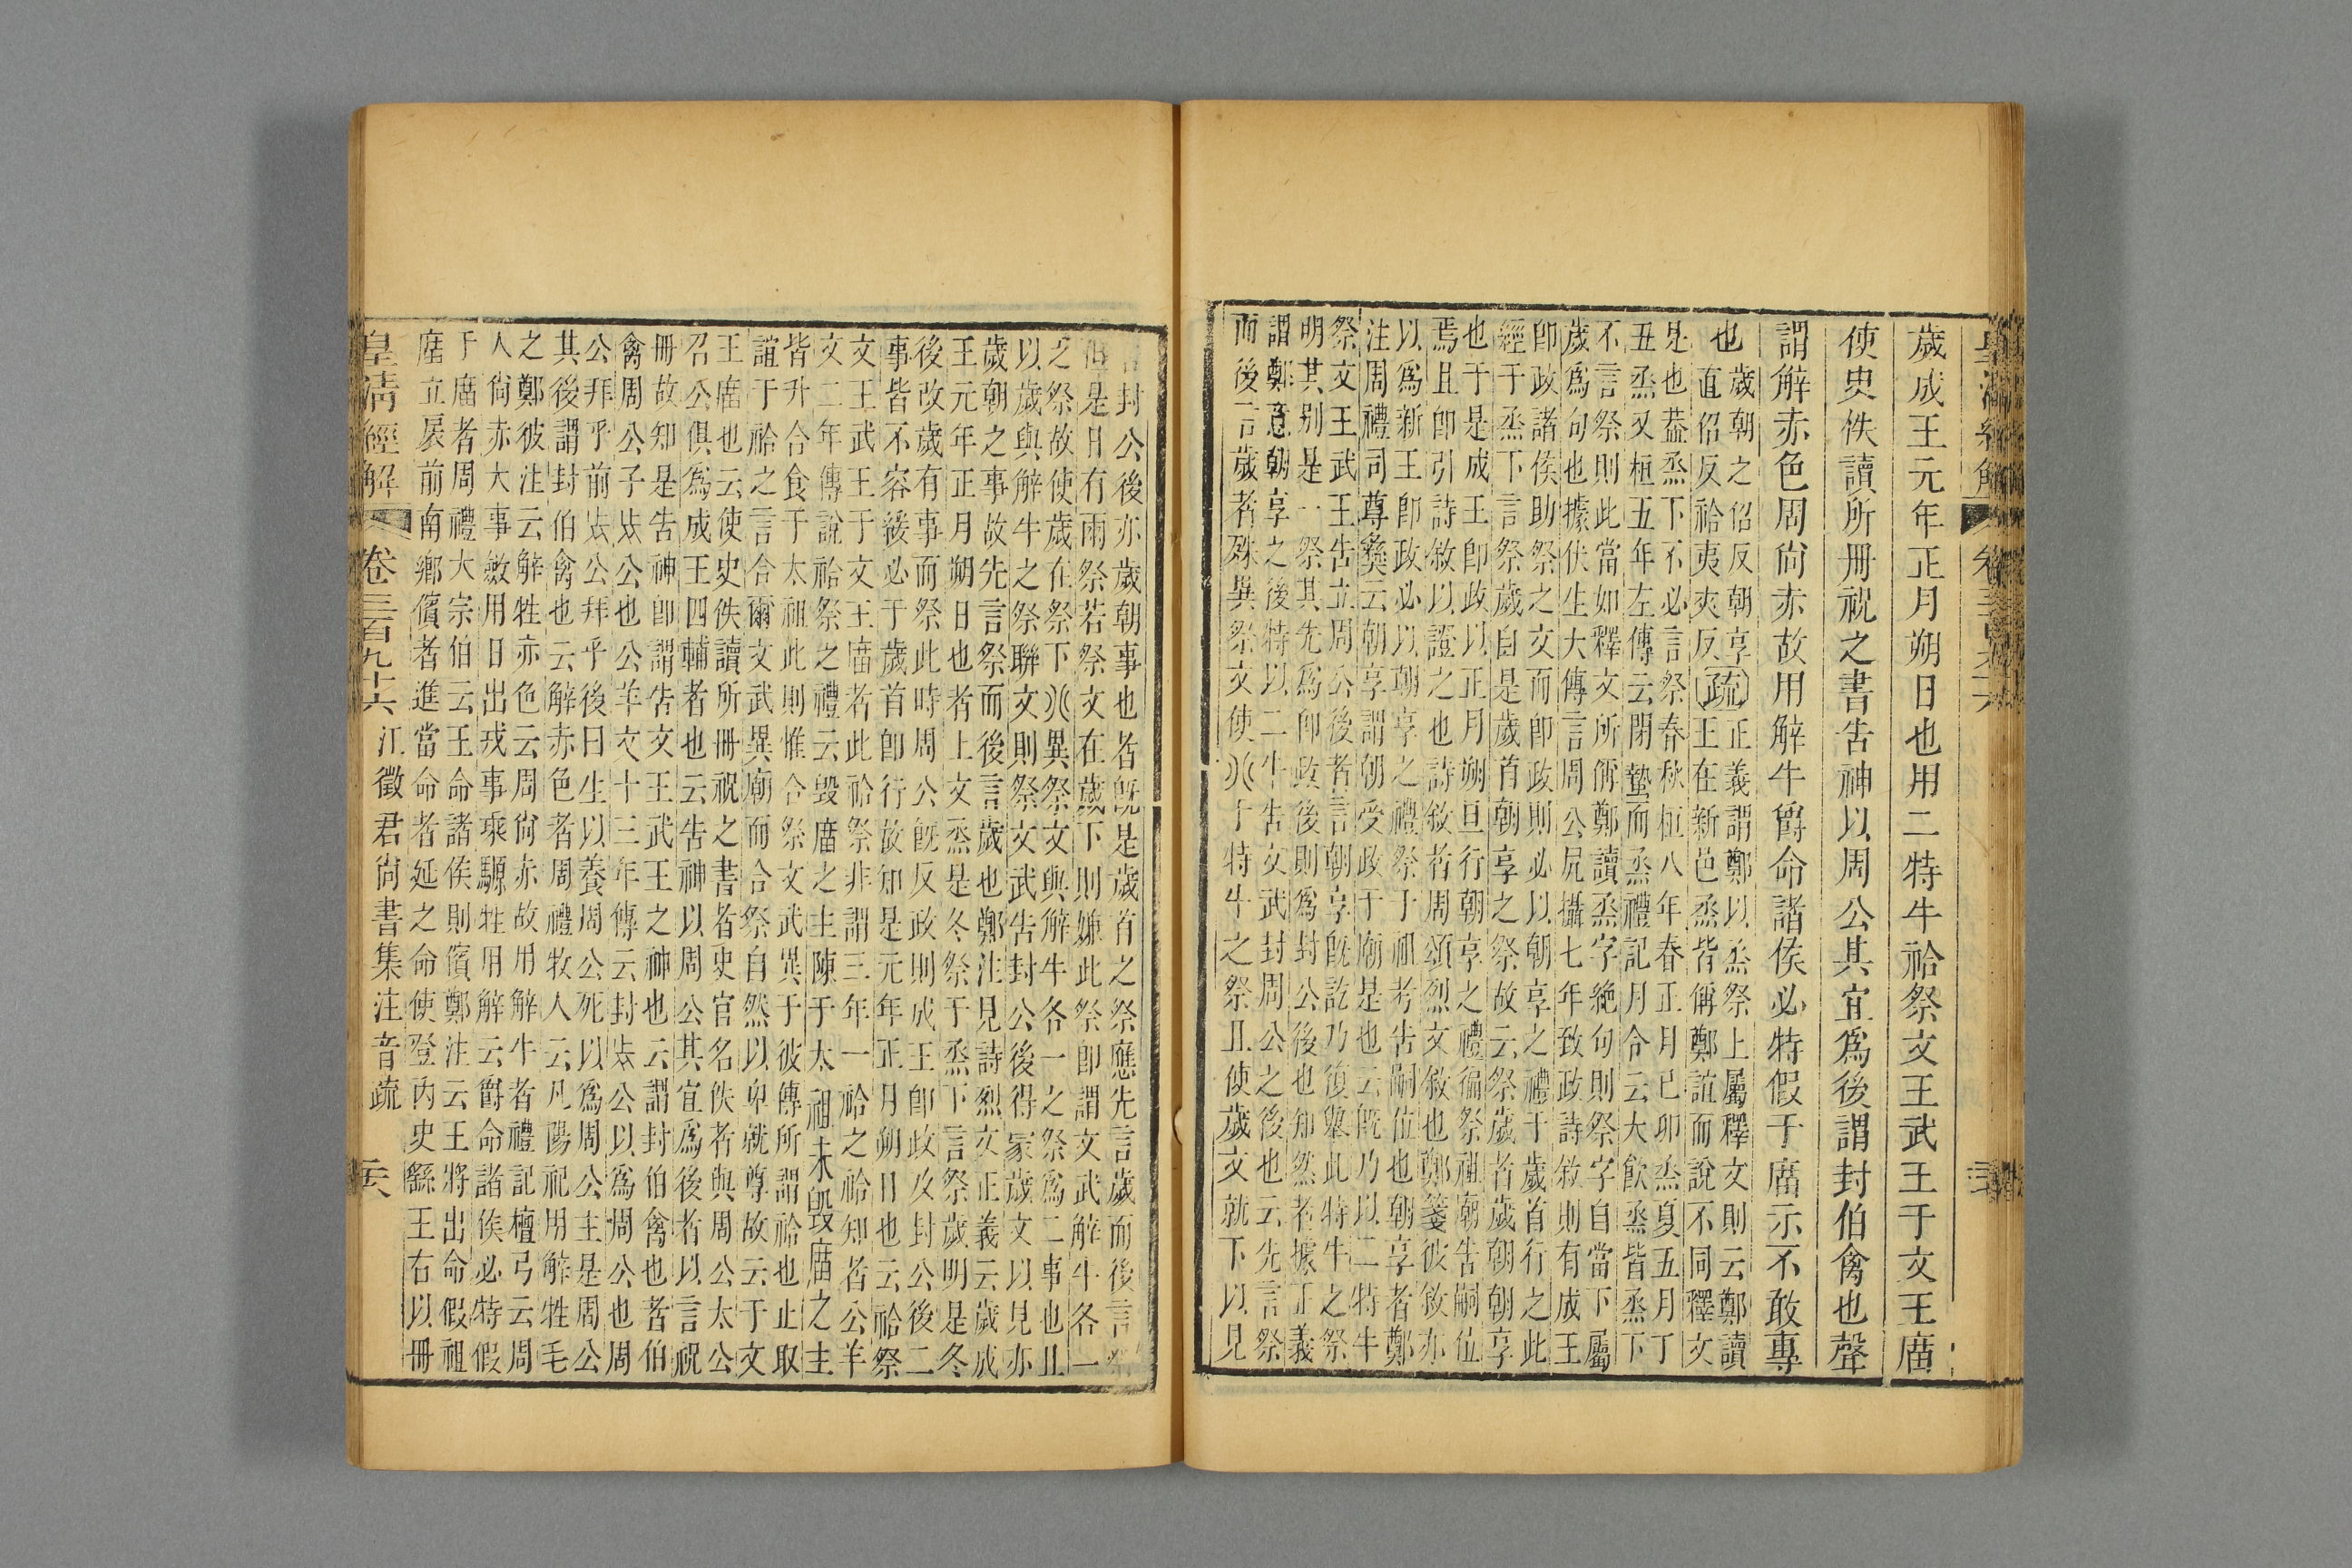 歲成王元年正月朔日也用二特牛祫祭文王武王于文王庿
使史佚讀所冊祝之書告神以周公其宜爲後謂封伯禽也觲
謂觲赤色周尙赤故用觲牛爵命諸侯必特假于庿示不敢專
也 歲朝之佋反朝享
直佋反祫夷夾反 疏 正義謂鄭以烝祭上屬釋文則云鄭讀
王在新邑烝皆偁鄭誼而說不同釋文
是也葢烝下不必言祭春秋桓八年春正月已卯烝夏五月丁
丑烝又桓五年左傳云閉蟄而烝禮記月令云大飮烝皆烝下
不言祭則此當如釋文所偁鄭讀烝字絶句則祭字自當下屬
歲爲句也據伏生大傳言周公凥攝七年致政詩敘則有成王
卽政諸侯助祭之文而卽政則必以朝享之禮于歲首行之此
經于烝下言祭歲自是歲首朝享之祭故云祭歲者歲朝朝享
也于是成王卽政以正月朔旦行朝享之禮徧祭祖廟告嗣位
焉且卽引詩敘以證之也詩敘者周頌烈文敘也鄭箋彼敘亦
以爲新王卽政必以朝享之禮祭于祖考告嗣位也朝享者鄭
注周禮司尊彝云朝享謂朝受政于廟是也云旣乃以二特牛
祭文王武王告立周公後者言朝享旣訖乃復舉此特牛之祭
明其別是一祭其先爲卽政後則爲封公後也知然者據正義
謂鄭意朝享之後特以二牛告文武封周公之後也云先言祭
而後言歲者殊異祭文使𠔁于特牛之祭且使歲文就下以見
告封公後亦歲朝事也者旣是歲首之祭應先言歲而後言祭
但是日有兩祭若祭文在歲下則嫌此祭卽謂文武觲牛各一
之祭故使歲在祭下𠔁異祭文與觲牛各一之祭爲二事也且
以歲與觲牛之祭聯文則祭文武告封公後得冡歲文以見亦
歲朝之事故先言祭而後言歲也鄭注見詩烈文正義云歲成
王元年正月朔日也者上文烝是冬祭于烝下言祭歲明是冬
後改歲有事而祭此時周公旣反政則成王卽政及封公後二
事皆不容緩必于歲首卽行故知是元年正月朔日也云祫祭
文王武王于文王庿者此祫祭非謂三年一祫之祫知者公羊
文二年傳說祫祭之禮云毀庿之主陳于太祖未毀庿之主
皆升合食于太祖此則惟合祭文武異于彼傳所謂祫也止取
誼于祫之言合爾文武異廟而合祭自然以卑就尊故云于文
王庿也云使史佚讀所冊祝之書者史官名佚者與周公太公
召公俱爲成王四輔者也云告神以周公其宜爲後者以言祝
冊故知是告神卽謂告文王武王之神也云謂封伯禽也者伯
禽周公子𣥐公也公羊文十三年傳云封𣥐公以爲周公也周
公拜乎前𣥐公拜乎後曰生以養周公死以爲周公主是周公
其後謂封伯禽也云觲赤色者周禮牧人云凡陽祀用觲牲毛
之鄭彼注云觲牲赤色云周尙赤故用觲牛者禮記檀弓云周
人尙赤大事斂用日出戎事乘騵牲用觲云爵命諸侯必特假
于庿者周禮大宗伯云王命諸侯則儐鄭注云王將出命假祖
庿立扆前南鄉儐者進當命者延之命使登內史繇王右以冊
皇清經解 卷三百九十六 江徵君尙書集注音疏